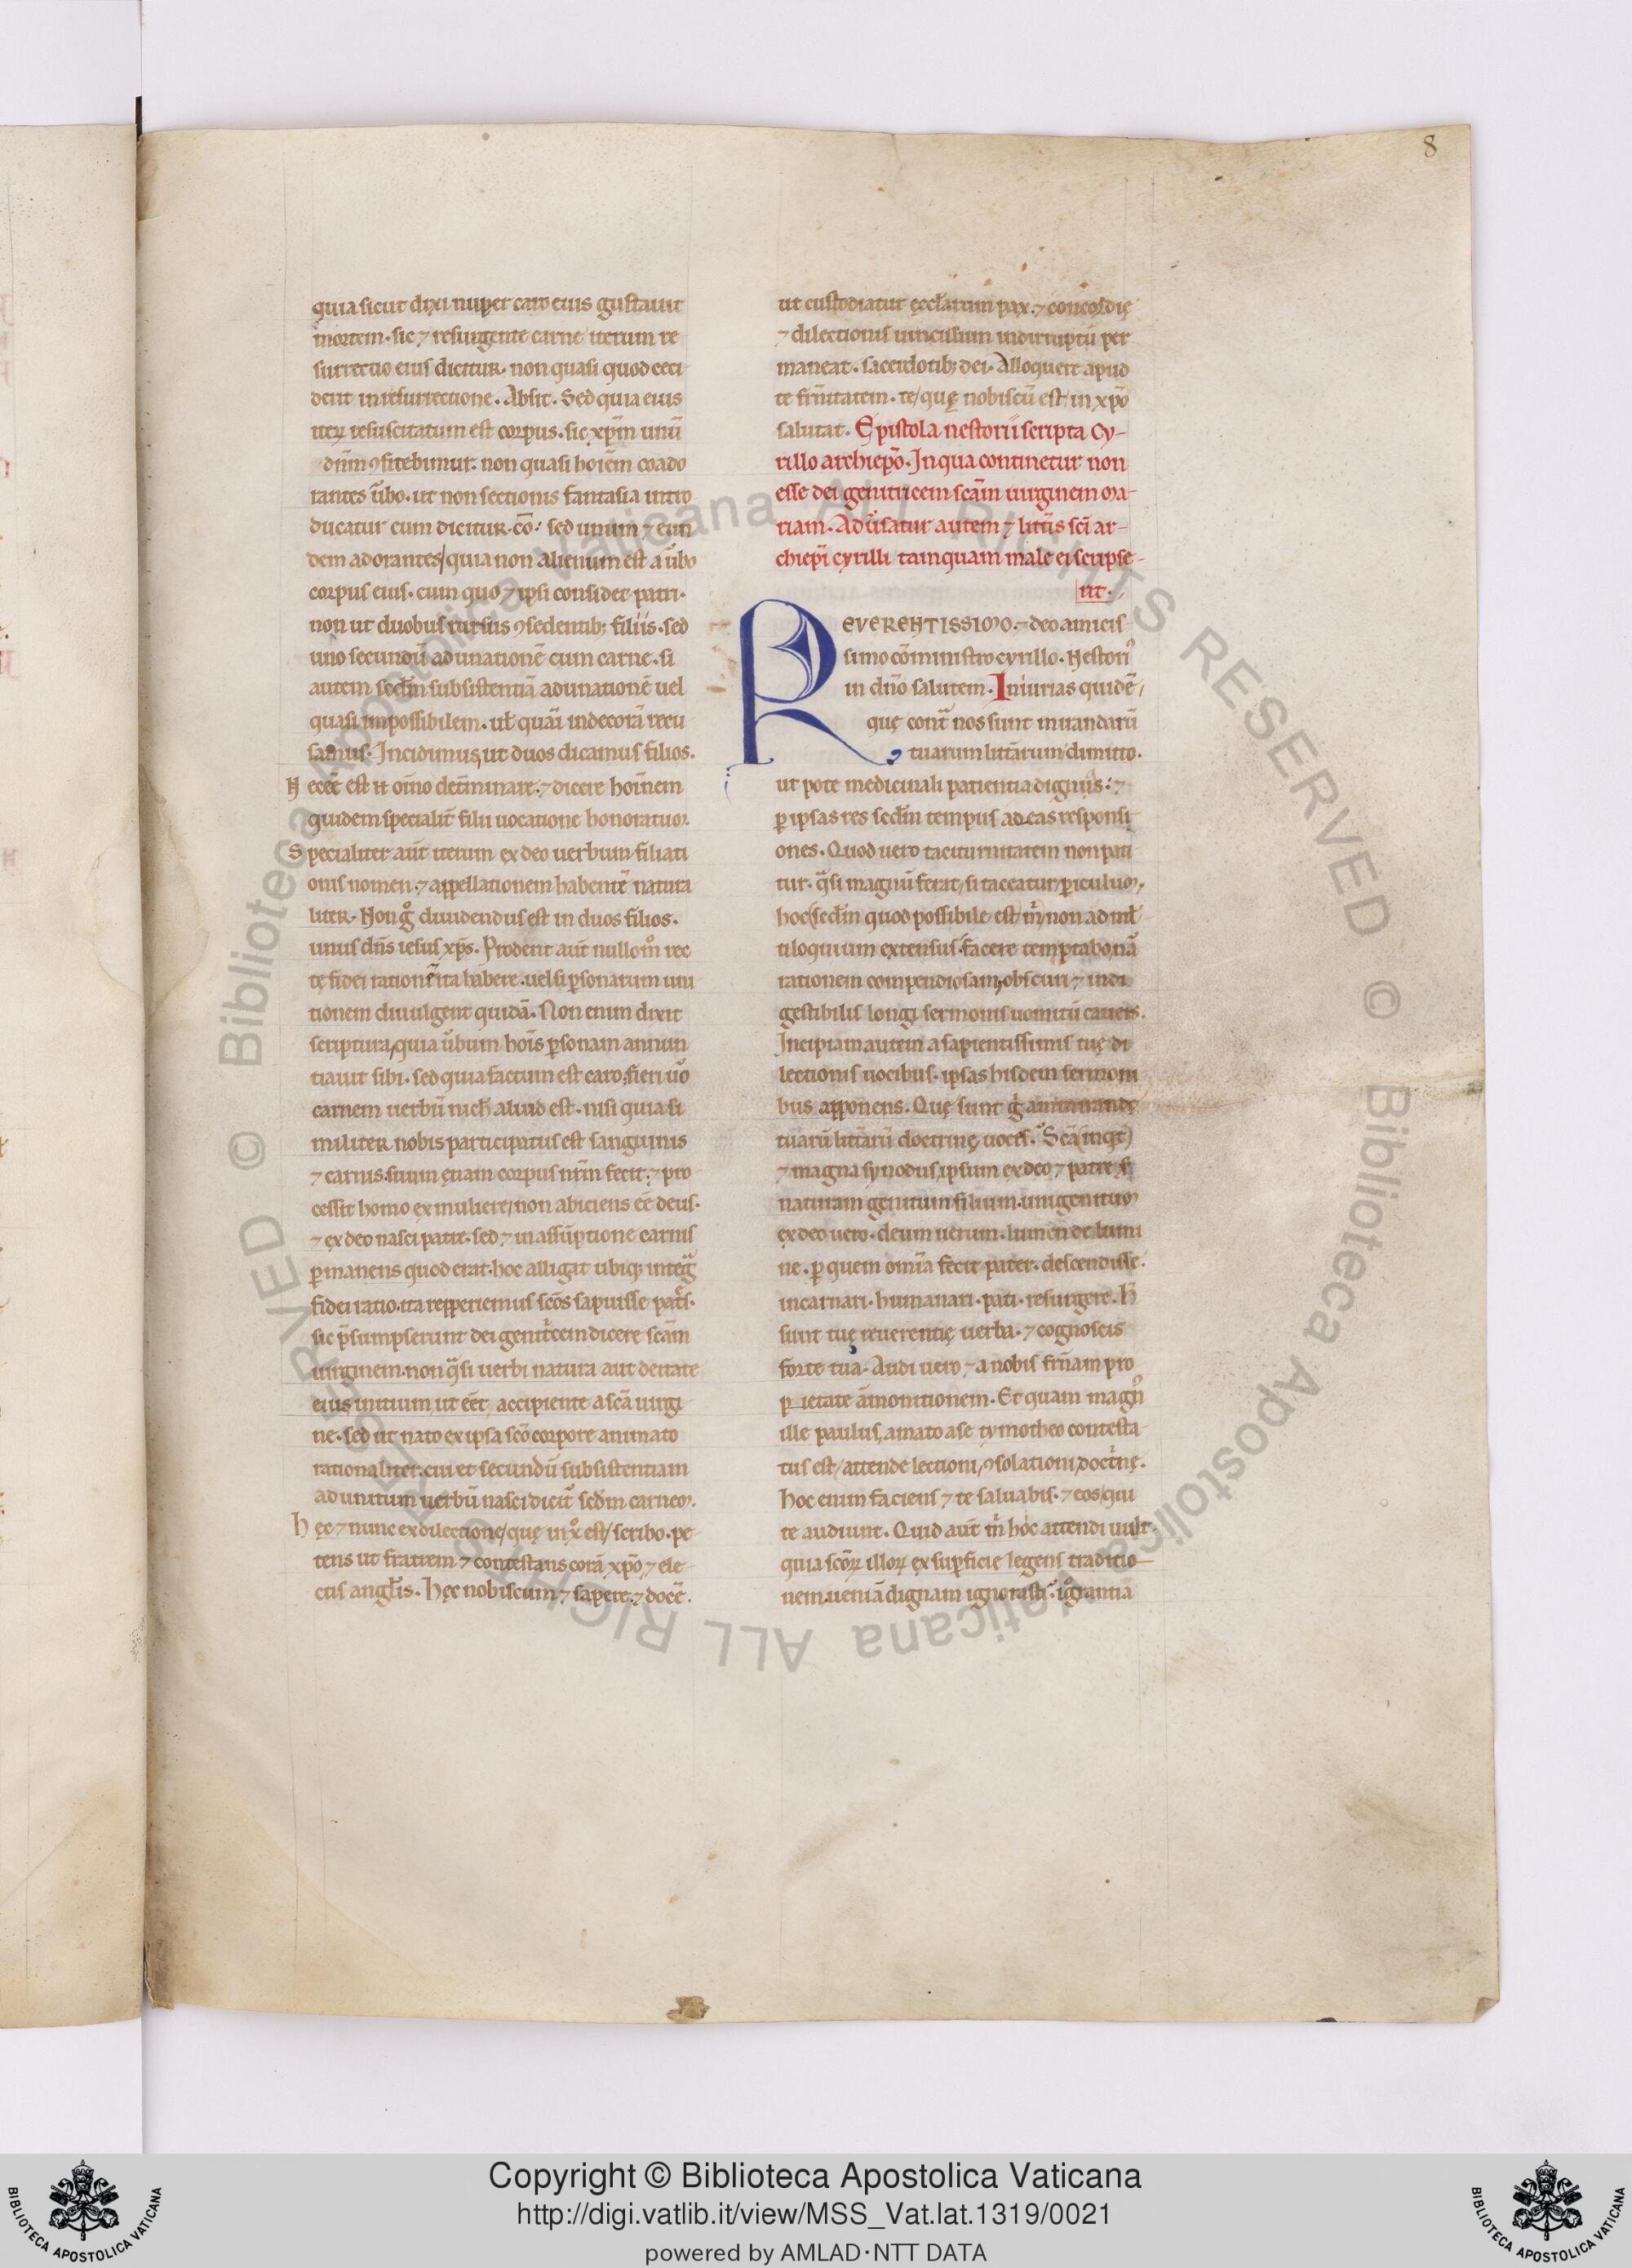 8
quia sicut dixi nuper caro eius gustauit
mortem. sic ⁊ resurgente carne iterum re
surrectio eius dicitur. non quasi quod ceci
derit in resurrectione. Absit. Sed quia eius
iterꝝ resuscitatum est corpus. sic xp̄m unū
dn̄m ꝯfitebimur. non quasi hoīem coado
rantes ūbo. ut non sectionis fantasia intro
ducatur cum dicitur. cō. sed unum ⁊ eun
dem adorantes/ quia non alienum est a ūbo
corpus eius. cum quo ⁊ ipsi consider patri.
non ut duobus rursus ꝯsedentib; filiis. sed
uno secundū adunationē cum carne. si
autem scd̄m subsistentiā adunationē uel
quasi impossibilem. ul̄ quāi indecorā recu
samus. Incidimus, ut duos dicamus filios.
Necēē est oīno detīminare. ⁊ dicere hoīnem
quidem specialit̄ filii uocatione honoratum.
Specialiter aūt iterum ex deo uerbum filiati
onis nomen. ⁊ appellationem habentē natura
liter. Non gͦ diuidendus est in duos filios.
unus dn̄s iesus xp̄s. Proderit aūt nullom̊ rec
tę fidei rationē ita habere. uel si p̱sonarum uni
tionem diuulgent quidā. Non enim dixit
scriptura, quia ūbum hoīs p̱sonam annun
tiauit sibi. sed quia factum est caro, fieri u̇o
carnem uerbū nich̄ aliud est. nisi quia si
militer nobis participatus est sanguinis
⁊ carnis. suum etiam corpus nr̄m fecit. ⁊ pro
cessit homo ex muliere/ non abiciens eē deus.
⁊ ex deo nasci patre. sed ⁊ in assūptione carnis
p̱manens quod erat. hoc alligat ubiq; integ̃
fidei ratio. ita repperiemus scōs sapuisse pat̄s.
sic p̄sumpserunt dei genit̄cem dicere scām
uirginem. non q̃si uerbi natura aut deitate
eius initium, ut eēt, accipiente a scā uirgi
ne. sed ut nato ex ipsa scō corpore animato
rationaliter. cui et secundū subsistentiam
adunitum uerbū nasci dicit̄ scd̄m carnem.
Hęc ⁊ nunc ex dilectione/ quę in xͦ est/ scribo. pe
tens ut fratrem ⁊ contestans corā xp̄o, ⁊ ele
ctis angl̄is. Hęc nobiscum ⁊ sapere. ⁊ docē.
ut custodiatur ęccl̄arum pax. ⁊ concordię
⁊ dilectionis uinculum indirruptū per
maneat. sacerdotib; dei. Alloquere apud
te fr̄nitatem. te/ quę nobiscū est/ in xp̄o
salutat. Epistola nestorii scripta Cy-
rillo archiep̄o. In qua continetur non
esse dei genitricem scām uirginem Ma-
riam. Aduīsatur autem ⁊ litt̄is scī ar-
chiep̄i cyrilli tamquam male ei scripse-
rit.
REVERENTISSIMO. ⁊ deo amicis
simo cōministro cyrillo. Nestori᾽
in dn̄o salutem. Iniurias quidē/
quę cont̄ nos sunt in uandarū
tuarum litt̄arum/ dimitto.
ut pote medicinali patientia dignus: ⁊
p̱ ipsas res scd̄m tempus ad eas responsi
ones. Quod uero taciturnitatem non pati
tur. q̃si magnū ferat/ si taceatur/ p̱iculum,
hoc (scd̄m quod possibile est m̄) non ad ml̄
tiloquium extensus. facere temptabo, nā
rationem compendiosam, obscuri ⁊ indi
gestibilis longi sermonis uomitū cauens.
Incipiam autem a sapientissimis tuę di
lectionis uocibus. ipsas hisdem sermoni
bus apponens. Quę sunt g̊ ammirande
tuarū litt̄arū doctrinę uoces. Scā (inq̇t)
⁊ magna synodus, ipsum ex deo ⁊ patre s̄
naturam genitum filium. unigenitum
ex deo uero. deum uerum. lumen de lumi
ne. p̱ quem omīa fecit pater. descendisse.
incarnari. humanari. pati. resurgere. H̄
sunt tuę reuerentię uerba. ⁊ cognoscis
forte tua. Audi uero ⁊ a nobis fr̄nam pro
p̱ietate āmonitionem. Et quam magn᾽
ille paulus, amato a se tymotheo contesta
tus est/ attende lectioni, ꝯsolationi, doct̄nę.
Hoc enim faciens ⁊ te saluabis. ⁊ eos/ qui
te audiunt. Quid aūt m̄ hoc attendi uult.
quia scōꝝ illoꝝ ex sup̱ficie legens traditio-
nem. ueniā dignam ignorasti. ignorantiā
Copyright © Biblioteca Apostolica Vaticana
http://digi.vatlib.it/view/MSS_Vat.lat.1319/0021
powered by AMLAD·NTT DATA